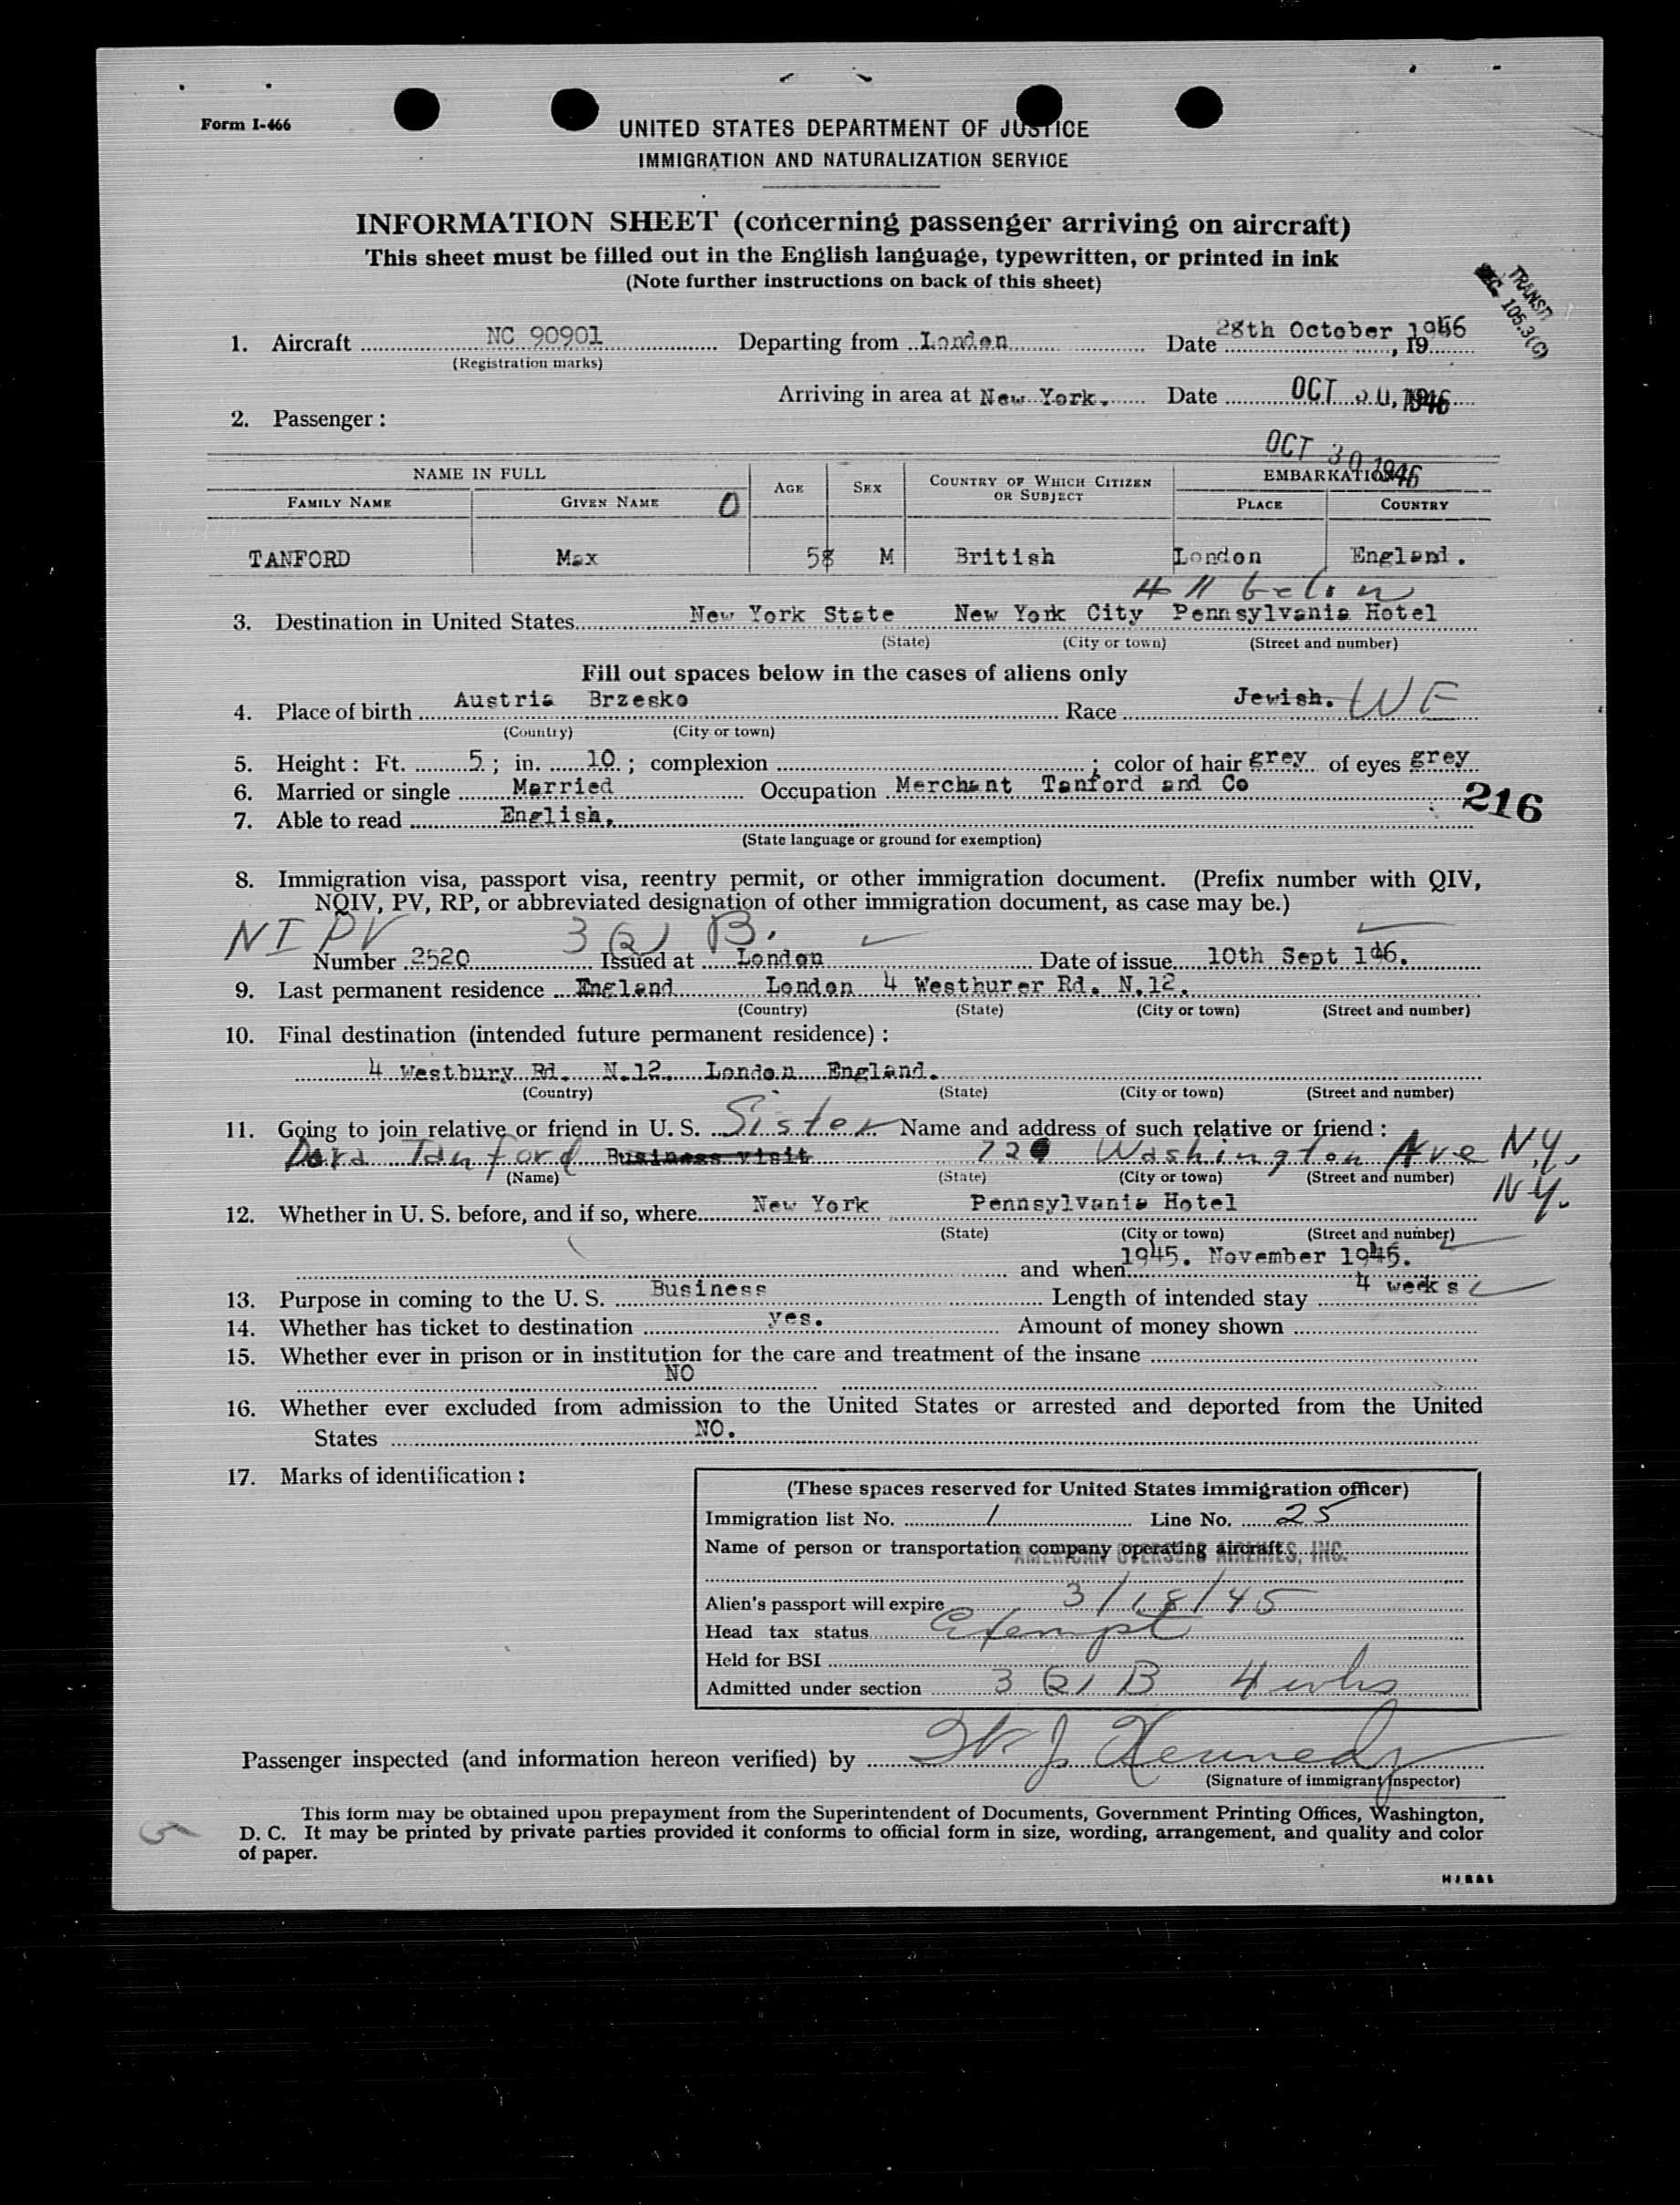 Form I-466
UNITED STATES DEPARTMENT OF JUSTICE
IMMIGRATION AND NATURALIZATION SERVICE
INFORMATION SHEET (concerning passenger arriving on aircraft)
This sheet must be filled out in the English language, typewritten, or printed in ink
(Note further instructions on back of this sheet)
TRANSIT
SEC. 105.3(C)
1. Aircraft NC 90901 Departing from London Date 28th October, 1946
(Registration marks)
Arriving in area at New York. Date OCT 1946
2. Passenger:
OCT 30 1946
NAME IN FULL AGE SEX COUNTRY OF WHICH CITIZEN OR SUBJECT EMBARKATION
FAMILY NAME GIVEN NAME O PLACE COUNTRY
TANFORD Max 58 M British London England.
# 11 below
3. Destination in United States New York State New York City Pennsylvania Hotel
(State) (City or town) (Street and number)
Fill out spaces below in the cases of aliens only
4. Place of birth Austria Brzesko Race Jewish. WE
(Country) (City or town)
5. Height: Ft. 5; in. 10; complexion ; color of hair grey of eyes grey
6. Married or single Married Occupation Merchant Tanford and Co
216
7. Able to read English.
(State language or ground for exemption)
8. Immigration visa, passport visa, reentry permit, or other immigration document. (Prefix number with QIV,
NQIV, PV, RP, or abbreviated designation of other immigration document, as case may be.)
NI PV 3 (2) B.
Number 2520 Issued at London Date of issue 10th Sept 146.
9. Last permanent residence England London 4 Westburer Rd. N.12.
(Country) (State) (City or town) (Street and number)
10. Final destination (intended future permanent residence):
4 Westbury Rd. N.12. London England.
(Country) (State) (City or town) (Street and number)
11. Going to join relative or friend in U. S. Sister Name and address of such relative or friend:
Dora Tanford Business visit Washington Ave N.Y.
(Name) (State) (City or town) (Street and number)
N.Y.
12. Whether in U. S. before, and if so, where New York Pennsylvania Hotel
(State) (City or town) (Street and number)
and when 1945. November 1945.
13. Purpose in coming to the U. S. Business Length of intended stay 4 weeks
14. Whether has ticket to destination yes. Amount of money shown
15. Whether ever in prison or in institution for the care and treatment of the insane
NO
16. Whether ever excluded from admission to the United States or arrested and deported from the United
States NO.
17. Marks of identification:
(These spaces reserved for United States immigration officer)
Immigration list No. 1 Line No. 25
Name of person or transportation company operating aircraft AMERICAN OVERSEAS AIRLINES, INC.
Alien's passport will expire 3/18/45
Head tax status Exempt
Held for BSI
Admitted under section 3 (2) B 4 wks
Passenger inspected (and information hereon verified) by W J Kennedy
(Signature of immigrant inspector)
This form may be obtained upon prepayment from the Superintendent of Documents, Government Printing Offices, Washington,
D. C. It may be printed by private parties provided it conforms to official form in size, wording, arrangement, and quality and color
of paper.